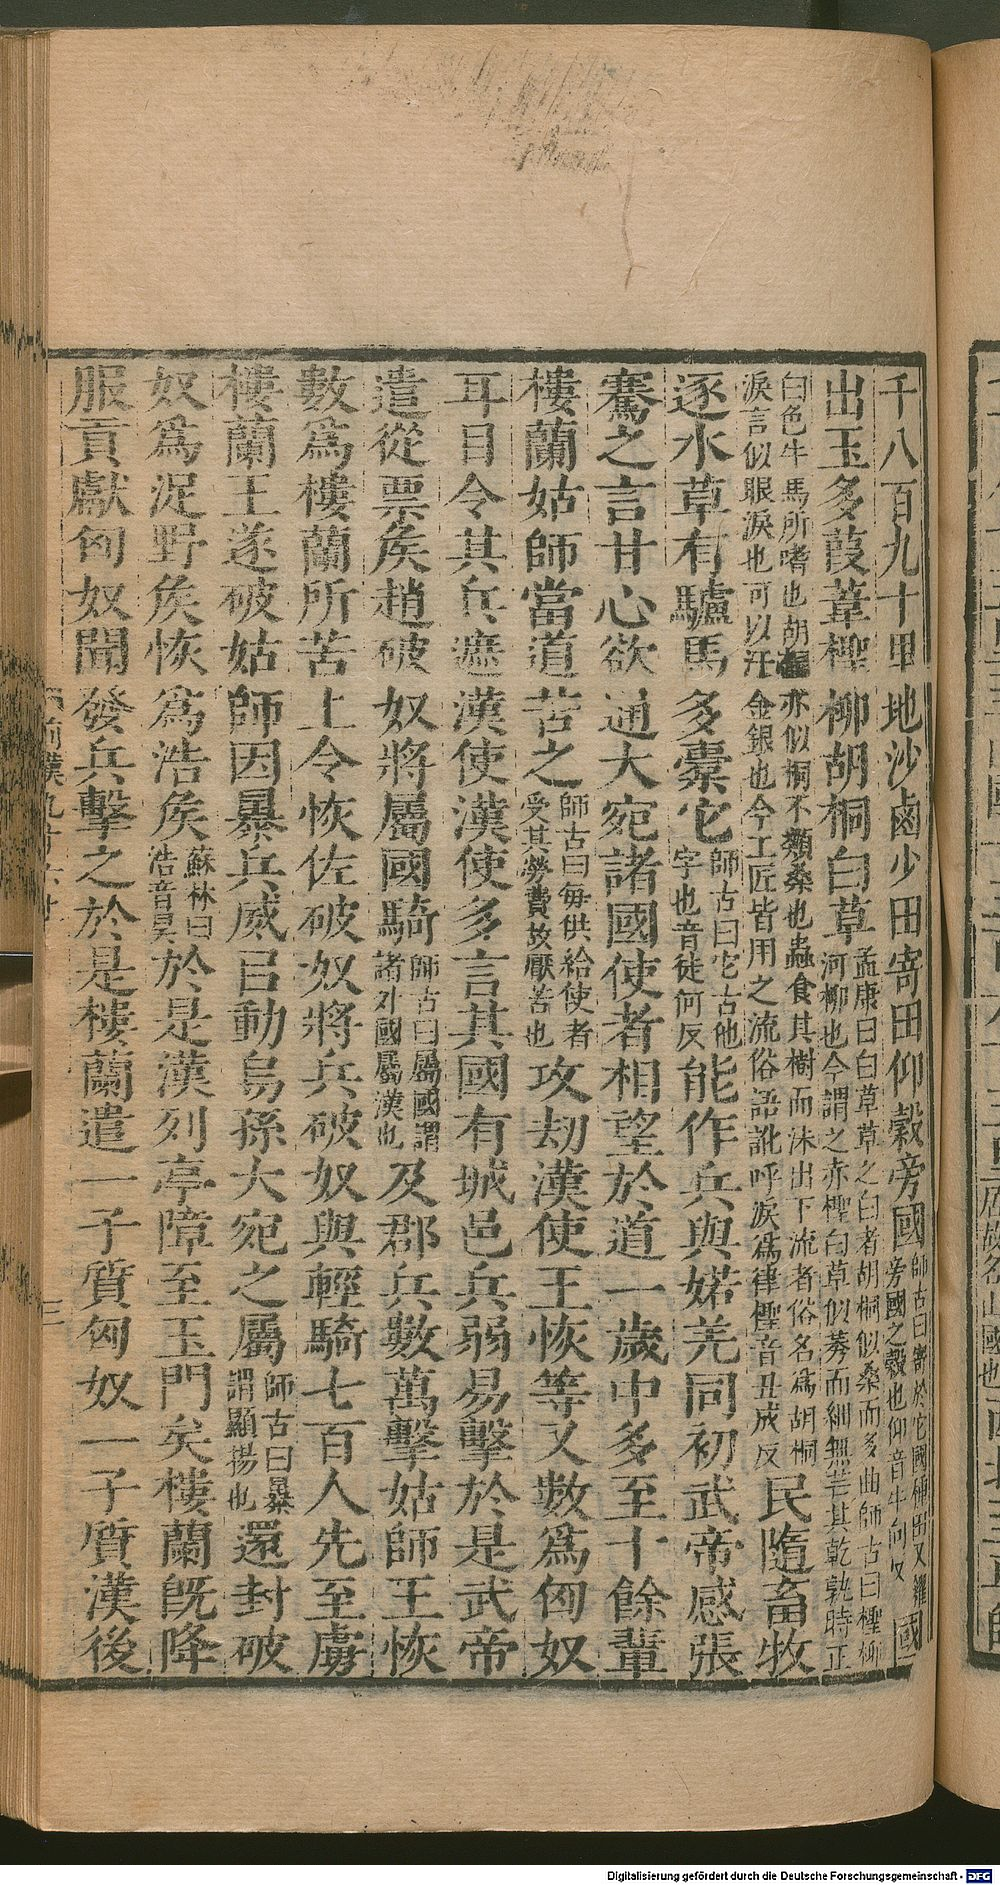 千八百九十里地沙鹵少田寄田仰穀旁國師古曰寄於它國種田又糴旁國之穀也仰音牛向反國
出玉多葭葦檉柳胡桐白草孟康曰白草草之白者胡桐似桑而多曲師古曰檉柳河柳也今謂之赤檉白草似莠而細無芒其乾孰時正
白色牛馬所嗜也胡桐亦似桐不類桑也蟲食其樹而沫出下流者俗名爲胡桐淚言似眼淚也可以汗金銀也今工匠皆用之流俗語訛呼淚爲律檉音丑成反民隨畜牧
逐水草有驢馬多橐它師古曰它古他字也音徒何反能作兵與婼羌同初武帝感張
騫之言甘心欲通大宛諸國使者相望於道一歲中多至十餘輩
樓蘭姑師當道苦之師古曰每供給使者受其勞費故厭苦也攻劫漢使王恢等又數爲匈奴
耳目令其兵遮漢使漢使多言其國有城邑兵弱易擊於是武帝
遣從票矦趙破奴將屬國騎師古曰屬國謂諸外國屬漢也及郡兵數萬擊姑師王恢
數爲樓蘭所苦上令恢佐破奴將兵破奴與輕騎七百人先至虜
樓蘭王遂破姑師因暴兵威㠯動烏孫大宛之屬師古曰暴謂顯揚也還封破
奴爲浞野矦恢爲浩矦蘇林曰浩音昊於是漢列亭障至玉門矣樓蘭旣降
服貢獻匈奴聞發兵擊之於是樓蘭遣一子質匈奴一子質漢後
三
Digitalisierung gefördert durch die Deutsche Forschungsgemeinschaft - DFG